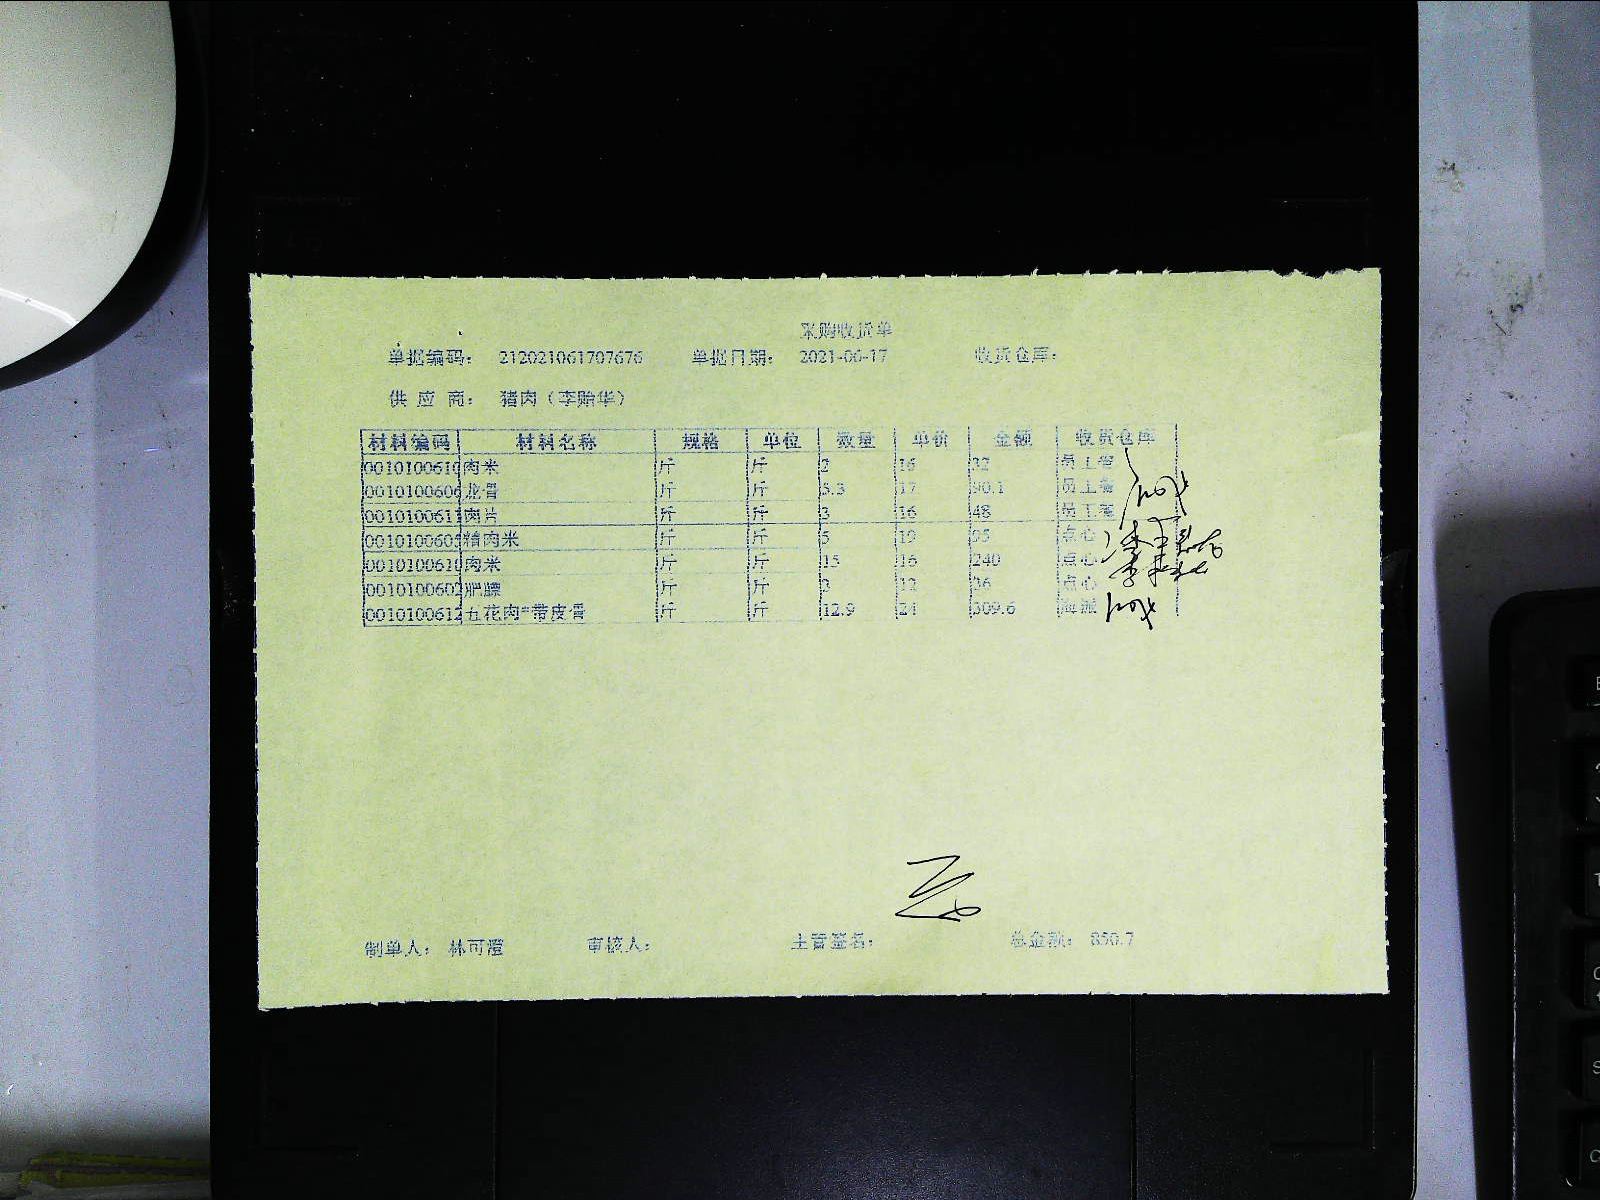 采购收货单
单据编码： 212021061707676 单据日期： 2021-06-17 收货仓库：
供 应 商： 猪肉（李贻华）
材料编码 材料名称 规格 单位 数量 单价 金额 收货仓库
0010100610 肉米 斤 斤 2 16 32 员工餐
0010100606 龙骨 斤 斤 5.3 17 90.1 员工餐
0010100611 肉片 斤 斤 3 16 48 员工餐
0010100605 精肉米 斤 斤 5 19 95 点心
0010100610 肉米 斤 斤 15 16 240 点心
0010100602 肥膘 斤 斤 3 12 36 点心
0010100612 五花肉*带皮骨 斤 斤 12.9 24 309.6
制单人： 林可澄 审核人： 主管签名： 总金额： 850.7